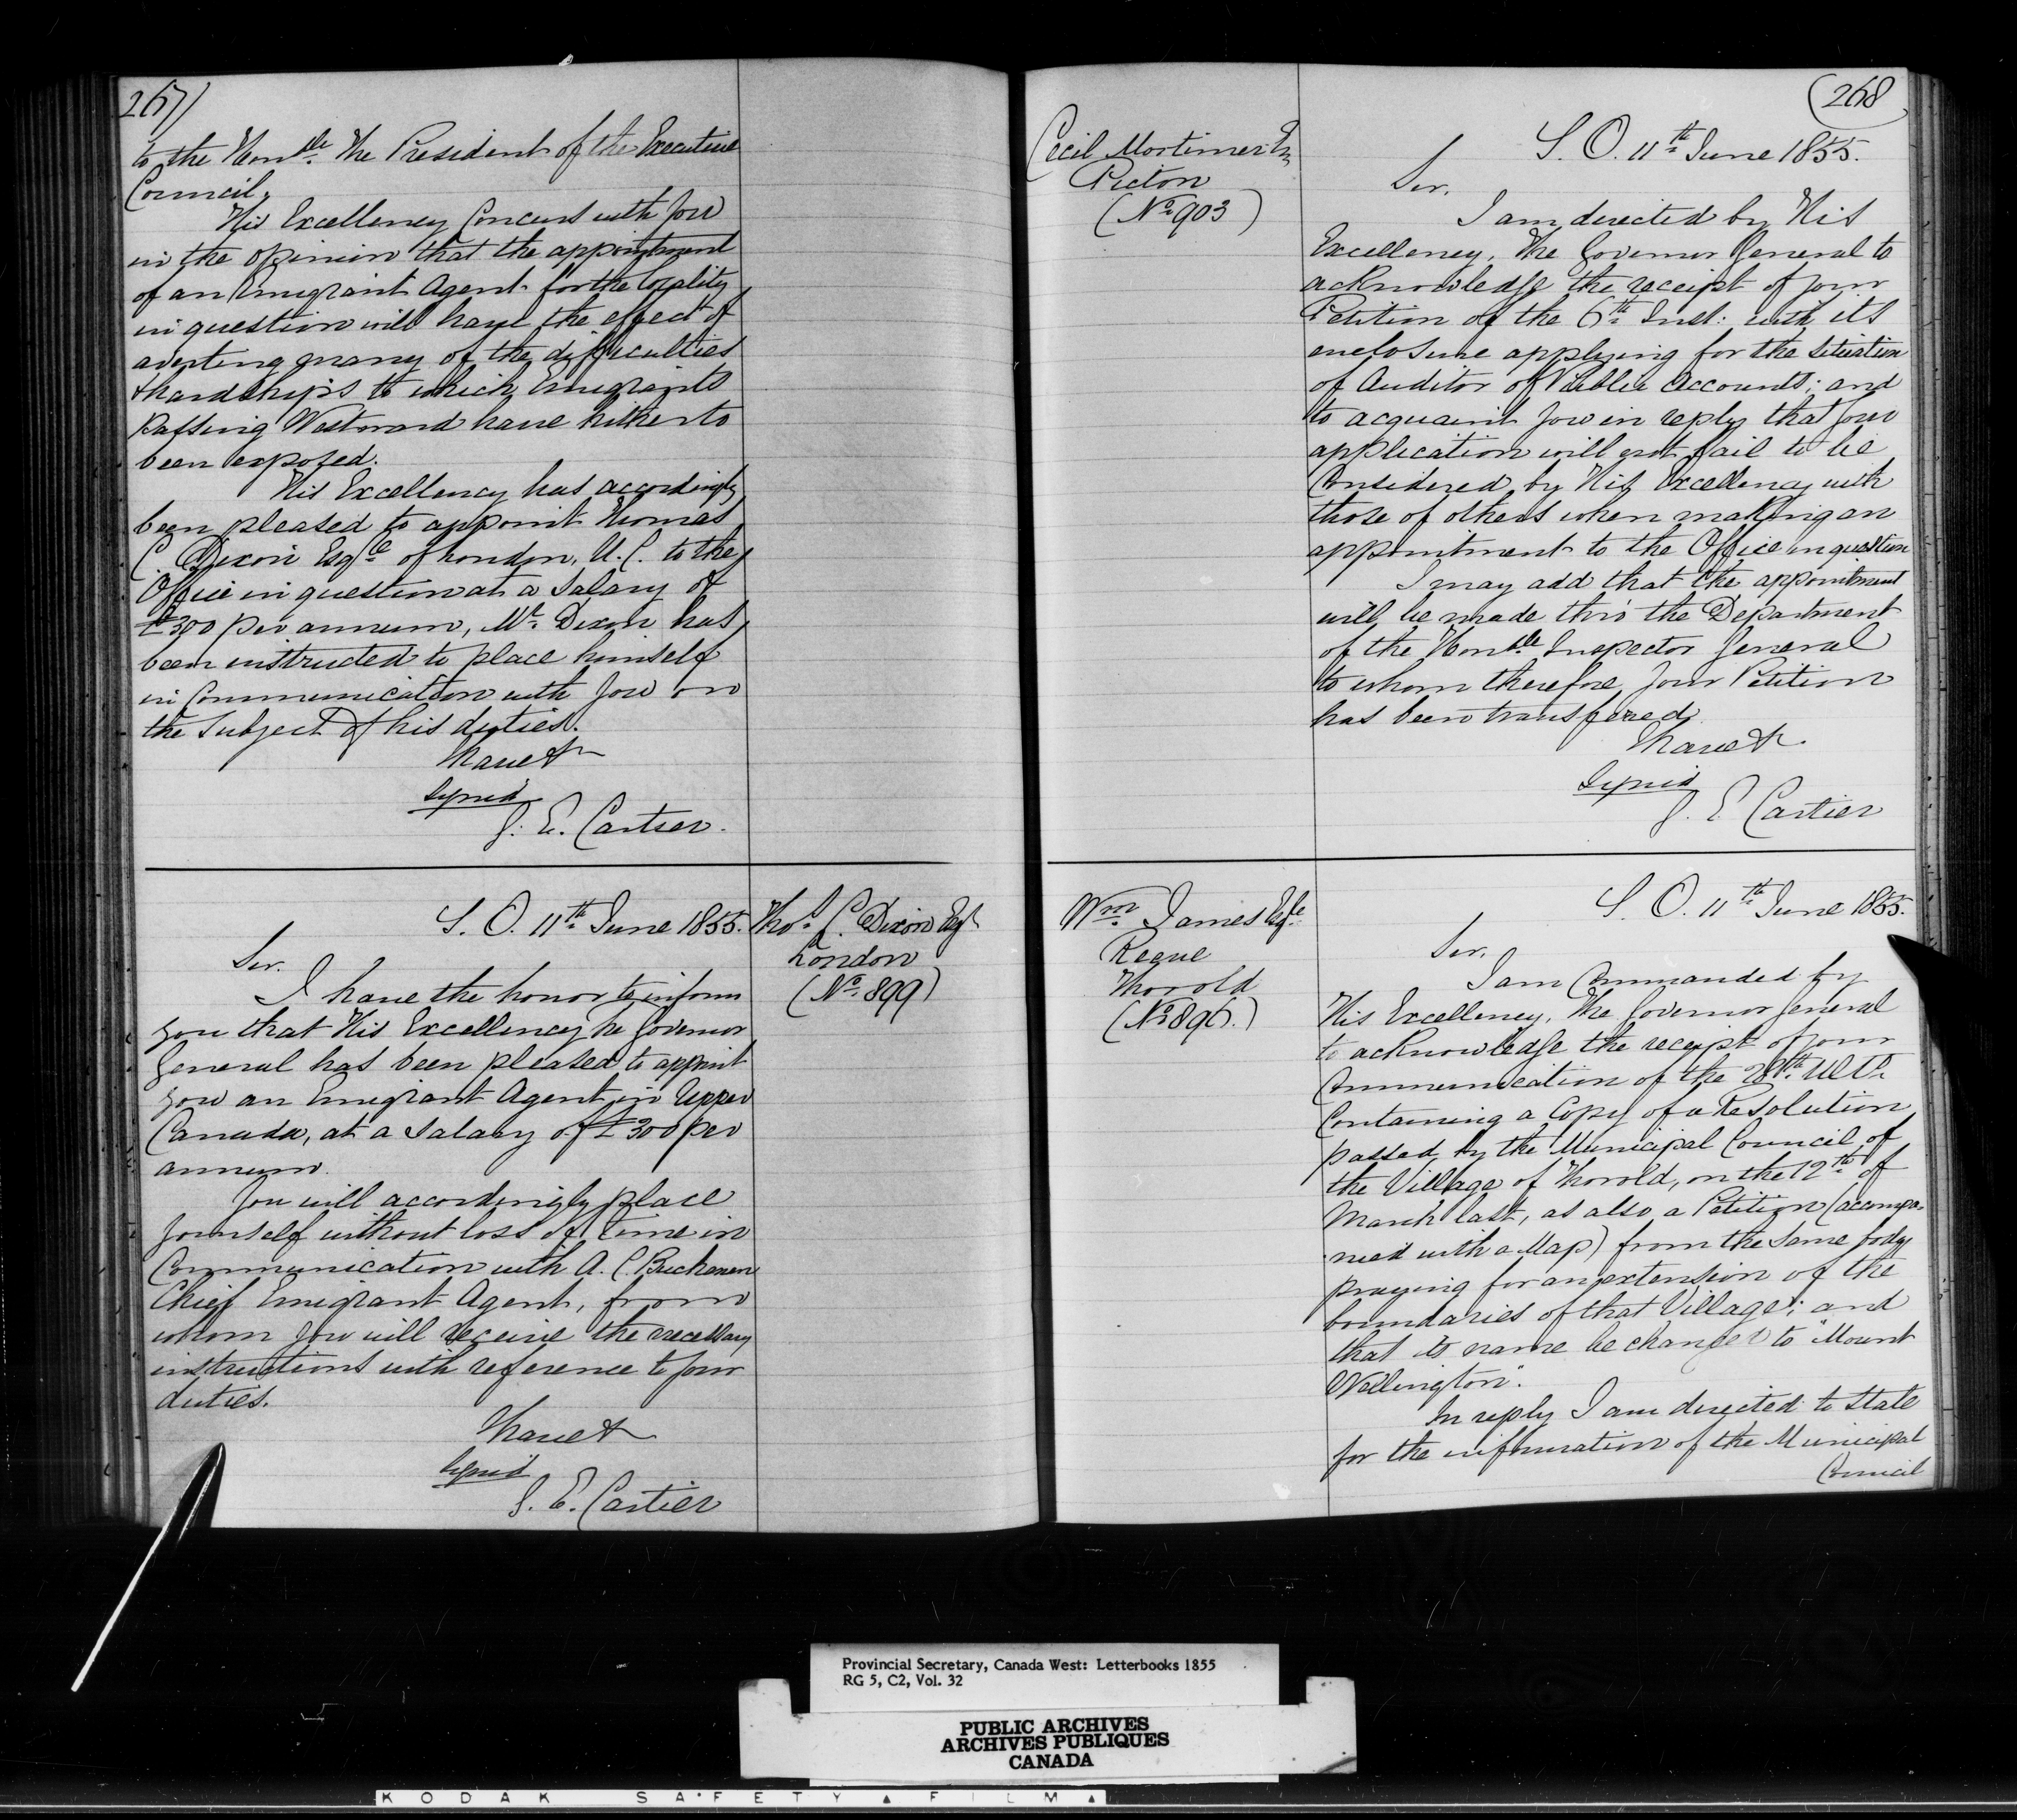 267)
to the Honble. The President of the Executive
Council.
His Excellency Concurs with you
in the opinion that the appointment
of an Emigrant Agent for the locality
in question will have the effect of
averting many of the difficulties
& hardships to which Emigrants
passing Westward have hitherto
been exposed.
His Excellency has accordingly
been pleased to appoint Thomas
C. Dixon Esqre. of London, U.C. to the
Office in question at a Salary of
£300 per annum, Mr. Dixon has
been instructed to place himself
in Communication with you on
the Subject of his duties.
I have &c
signed
G. E. Cartier.
S. O. 11th June 1855.
Thos. C. Dixon Esqr
London
(No. 899)
Sir.
I have the honor to inform
you that His Excellency the Governor
General has been pleased to appoint
you an Emigrant Agent in Upper
Canada, at a Salary of £300 per
annum.
You will accordingly place
yourself without loss of time in
Communication with A. C. Buchanan
Chief Emigrant Agent, from
whom you will receive the necessary
instructions with reference to your
duties.
I have &
signed
G. E. Cartier
(268
Cecil Mortimer Esq
Picton
(No. 903)
S. O. 11th June 1855.
Sir.
I am directed by His
Excellency, The Governor General to
acknowledge the receipt of your
Petition of the 6th Inst: with its
enclosure applying for the situation
of Auditor of Public Accounts; and
to acquaint you in reply that your
application will not fail to be
Considered by His Excellency with
those of others when making an
appointment to the Office in question
I may add that the appointment
will be made thro' the Department
of the Honble. Inspector General
to whom therefore your Petition
has been transfered.
I have &c.
Signed
G. E. Cartier
Wm. James Esqre.
Reeve
Thorold
(No 896.)
S. O. 11th June 1855.
Sir,
I am Commanded by
His Excellency, The Governor General
to acknowledge the receipt of your
Communication of the 28th. Ulto.
Containing a Copy of a Resolution
passed by the Municipal Council of
the Village of Thorold, on the 12th. of
March last, as also a Petition (accompa-
nied with a Map) from the same body
praying for an extension of the
boundaries of that Village; and
that its name be changed to "Mount
Wellington".
In reply I am directed to state
for the information of the Municipal
Council
Provincial Secretary, Canada West: Letterbooks 1855
RG 5, C2, Vol. 32
PUBLIC ARCHIVES
ARCHIVES PUBLIQUES
CANADA
KODAK SAFETY FILM